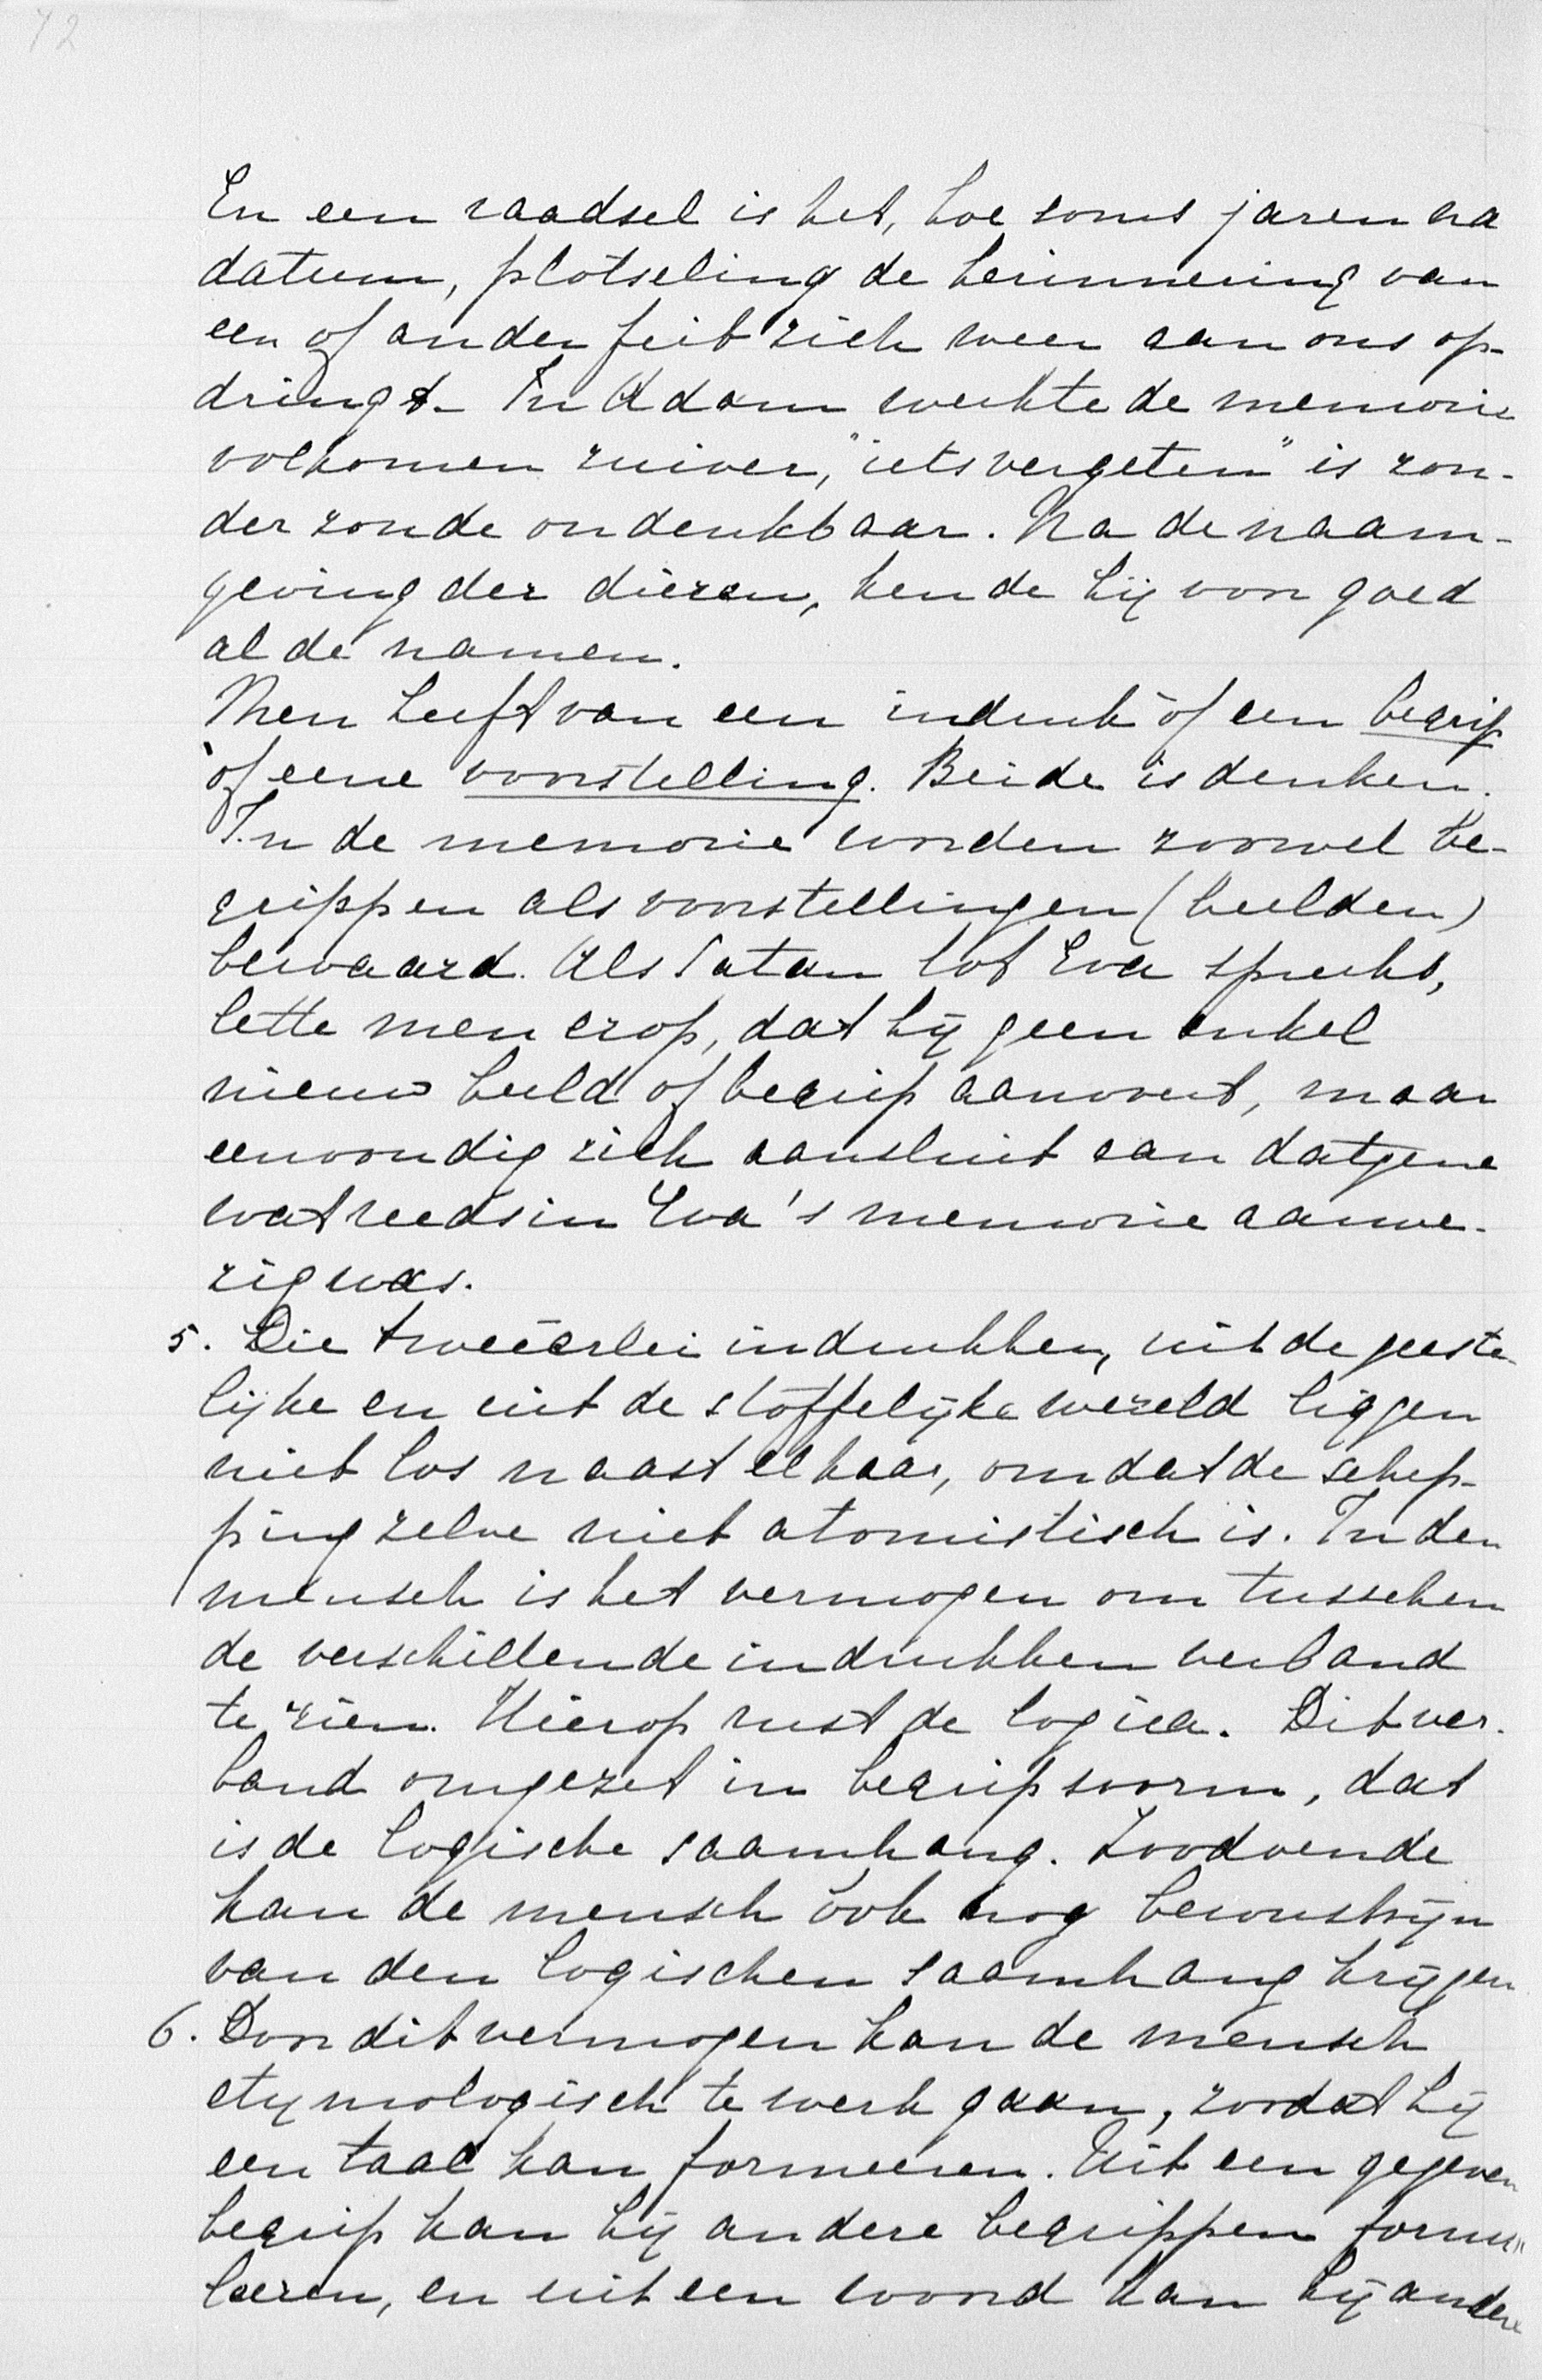 72
En een raadsel is het, hoe soms jaren na
datum, plotseling de herinnering van
een of ander feit zich weer aan ons op-
dringt. In Adam werkte de memorie
volkomen zuiver, "iets vergeten" is zon-
der zonde ondenkbaar. Na de naam-
geving der dieren, kende hij voor goed
al de namen.
Men heeft van een indruk óf een begrip
óf eene voorstelling. Beide is denken.
In de memorie worden zoowel be-
grippen als voorstellingen (beelden)
bewaard. Als Satan tot Eva spreekt,
lette men erop, dat hij geen enkel
nieuw beeld of begrip aanvoert, maar
eenvoudig zich aansluit aan datgene
wat reeds in Eva's memorie aanwe-
zig was.
5. Die tweeërlei indrukken, uit de geeste-
lijke en uit de stoffelijke wereld liggen
niet los naast elkaar, omdat de schep-
ping zelve niet atomistisch is. In den
mensch is het vermogen om tusschen
de verschillende indrukken verband
te zien. Hierop rust de logica. Dit ver-
band omgezet in begripsvorm, dat
is de logische saamhang. Zoodoende
kan de mensch ook nog bewustzijn
van den logischen saamhang krijgen
6. Door dit vermogen kan de mensch
etymologisch te werk gaan, zoodat hij
een taal kan formeeren. Uit een gegeven
begrip kan hij andere begrippen formu-
leeren, en uit een woord kan hij andere